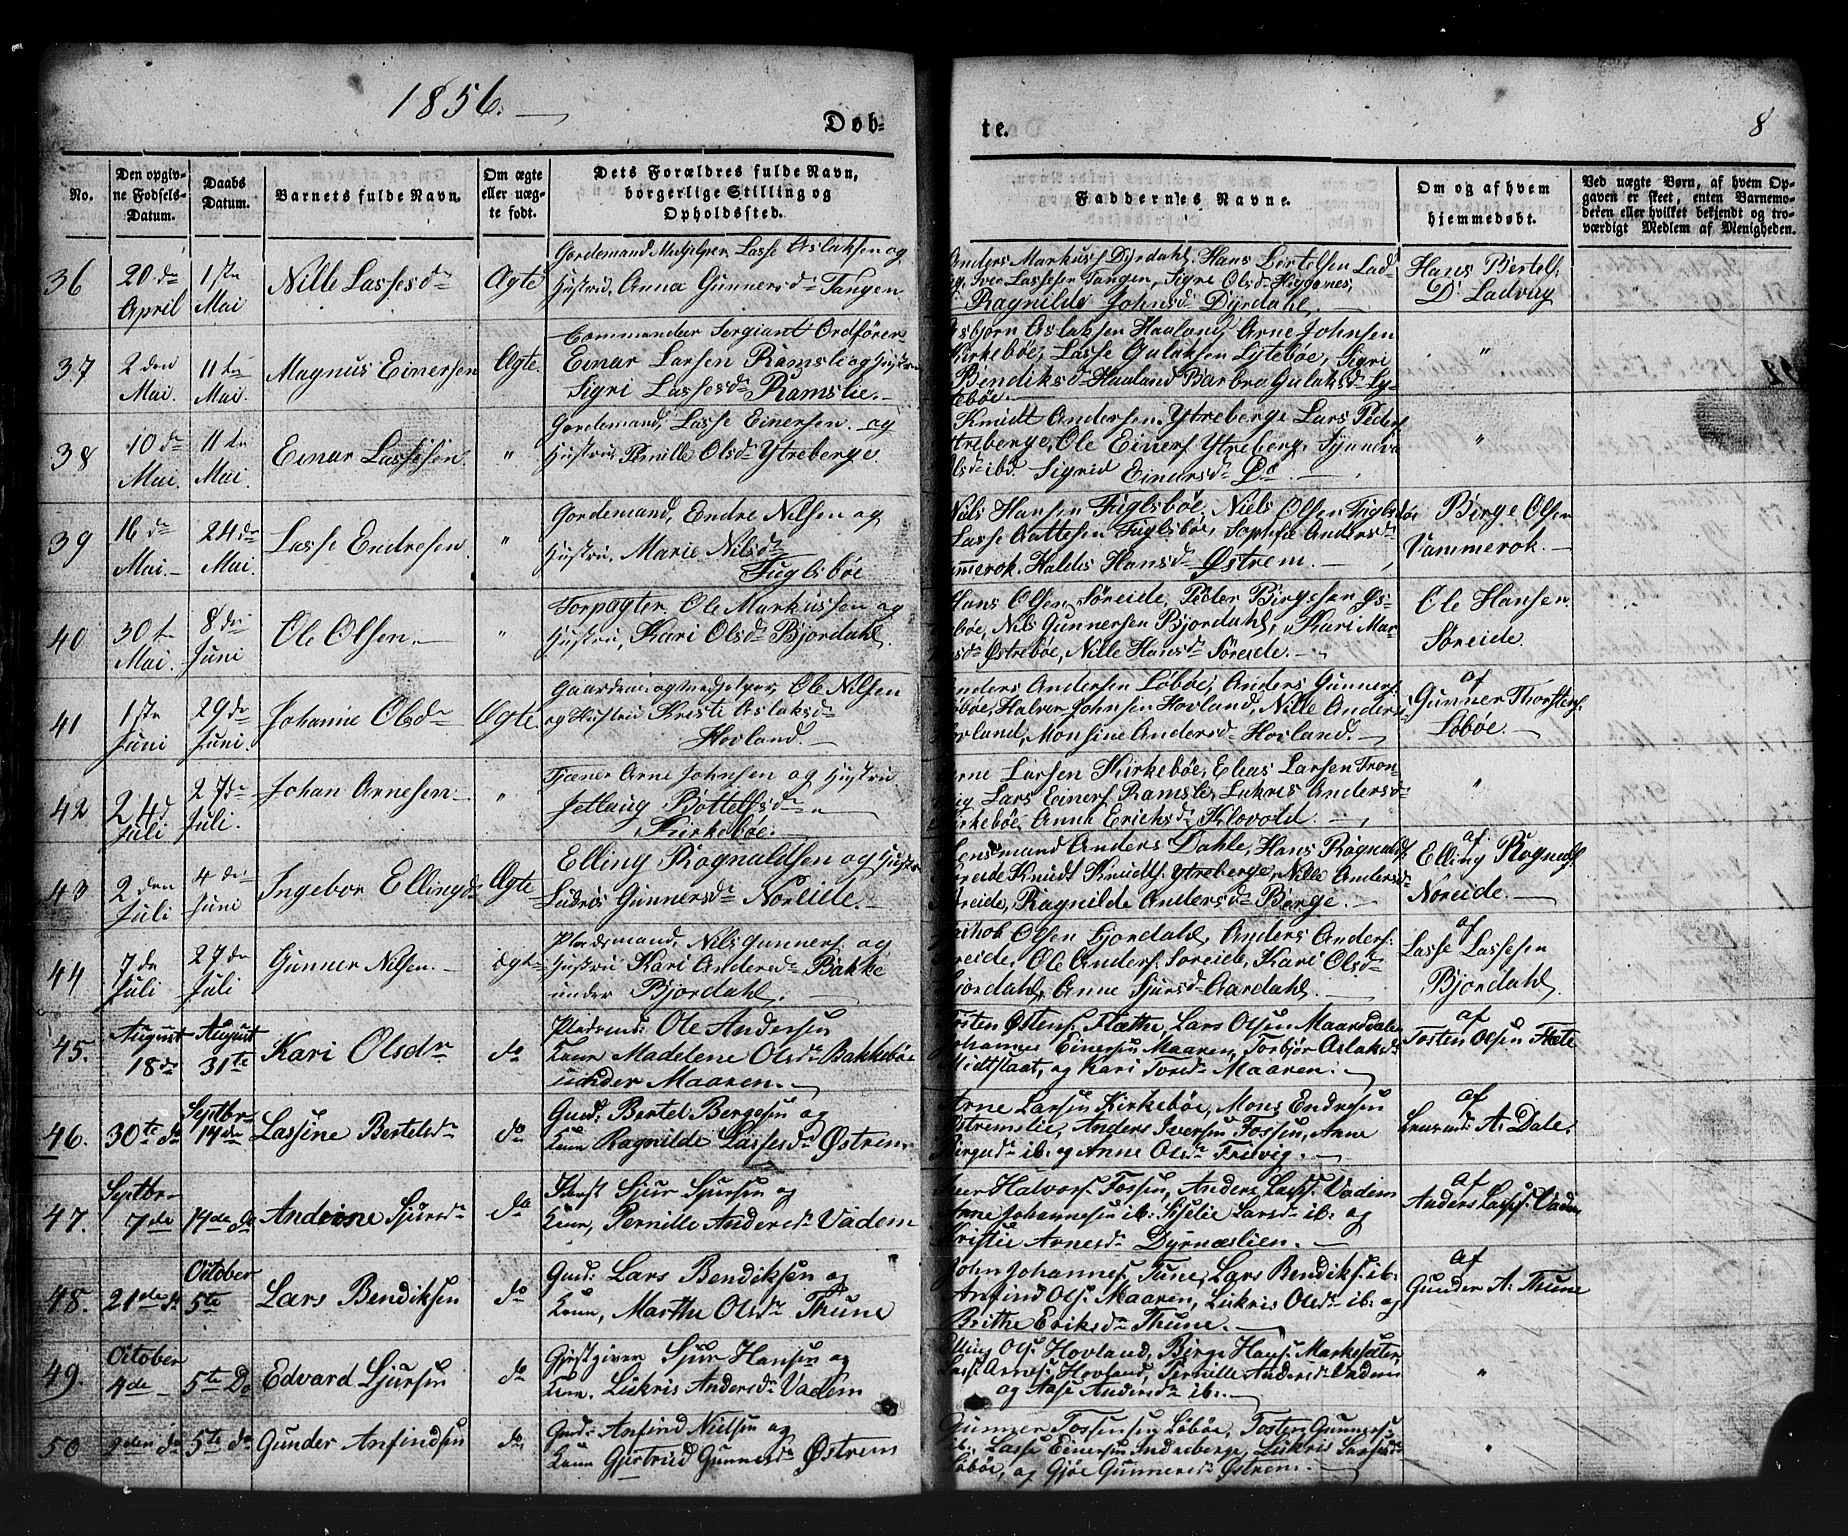 1856.
Døb-
te.
8
No.
Den opgiv-
ne Fødsels-
Datum.
Daabs
Datum.
Barnets fulde Navn.
Om ægte
eller uæg-
te født.
Dets Forældres fulde Navn,
borgerlige Stilling og
Opholdssted.
Faddernes Navne.
Om og af hvem
hjemmedøbt.
Ved uægte Børn, af hvem Op-
gaven er skeet, enten Barnemo-
deren eller hvilket bekjendt og tro-
værdigt Medlem af Menigheden.
36
20 de
April
1ste
Mai
Nille Lassesdr
Ægte
Gordemand Medhjelper Lasse Aslaksen og
Hustrue, Anna Gunnersdr Tangen
Anders Markus Dyrdahl, Hans Bertelsen Lad-
Iver Lassesen Tangen, Sigre Olsdr
Ragnilde Johnsdr Dyrdahl,
Hans Bertels:
Dr Ladvig
37
2 den
Mai.
11 te
Mai.
Magnus Einersen
Ægte.
Commandeer Sergiant Ordfører
Einar Larsen Ramsli og Hustrue
Sigri Lassesdr Ramslie.
Asbjørn Aslaksen Haaland, Arne Johnsen
Kirkebøe, Lasse Gulaksen Lytebøe, Sigri
Bendiksdr Haaland Barbra Gulaksdr Ly-
tebøe
"
38
10 de
Mai.
11 te
Mai.
Einar Lassesen
"
Gordemand, Lasse Einersen og
Hustrue, Pernille Olsdr Ytreberge.
Knudt Andersen Ytreberge Lars Peders
Ytreberge, Ole Einers Ytreberg, Synneva
Olsdr ibd Sigrid Einersdr Do
"
39
16 de
Mai.
24 de
Mai.
Lasse Endresen
"
Gordemand, Endre Nilsen og
Hustrue, Marie Nilsdr
Fuglsbøe
Niels Hansen Fuglsbøe, Niels Olsen Fuglsbøe
Lasse Aattesen Fuglsbøe, Sophie Andersdr
Vammerok. Haldis Hansdr Østrem.
Birge Olsen
Vammerok.
40
30 te
Mai.
8 de
Juni
Ole Olsen.
"
Forpagter, Ole Markussen og
Hustrue, Kari Olsdr Bjordahl
Hans Olsen Søreide, Peder Birgesen Øs-
bøe, Nils Gunnersen Bjordahl, Kari Mar-
sdr Østrebøe, Nille Hansdr Søreide.
Ole Hansen
Søreide.
41
1 ste
Juni
29 de
Juni
Johanne Olsdr
Ægte
Gaardem: og medhjelper, Ole Nilsen
og Hustrue Kristi Aslaksdr
Hovland.
Anders Andersen Løbøe, Anders Gunners:
Løbøe, Halvor Johnsen Hovland, Nille Anders:
Hovland, Monsine Andersdr Hovland.
af
Gunner Thorstens:
Løbøe.
42
24 d
Juli
27 de
Juli.
Johan Arnesen
"
Tjener Arne Johnsen og Hustrue
Jetlaug Bottelfsdr
Kirkebøe.
Arne Larsen Kirkebøe, Elias Larsen Tron-
vig Lars Einers Ramsli, Lukris Andersdr
Kirkebøe Anna Erichsdr Klovold.
"
43
2 den
Juli
4 de
Juni
Ingebor Ellingdr
Ægte
Elling Rognaldsen og Hustrue
Ludris Gunnersdr Noreide.
Lensmand Anders Dahle, Hans Rognalds
Noreide Knudt Knudts Ytreberge, Nille Andersdr
Noreide, Ragnilde Andersdr Berge.
af
Elling Rognalds
Noreide.
44
7 de
Juli
27 de
Juli
Gunner Nilsen.
Ægte
Pladsmand, Nils Gunners: og
Hustrue Kari Andersdr Bakke
under Bjordahl.
Olsen Bjordahl, Anders Anders:
Søreide, Ole Anders: Søreide, Kari Olsdr
Bjordahl, Anne Sjursdr Aardahl.
af
Lasse Lassesen
Bjordahl.
45.
August
18 de
August
31te
Kari Olsdr
do
Pladsmd: Ole Andersen
Kone Madelene Olsdr Bakkebøe
under Maaren.
Tosten Østens: Flæthe, Lars Olsen Maarsdalen
Johannes Einersen Maaren, Torbjør Aslaksdr
Midtflaat, og Kari Toresdr Maaren.
af
Tosten Olsen Flete
46.
30te do
Septbr
14 de
Lassine Bertelsdr
do
Gmd: Bertel Bergesen og
Kone Ragnilde Lassesdr Østrem.
Arne Larsen Kirkebøe, Mons Endresen
Østremslie, Anders Iversen Fossen, Anne
Birgesdr ib: og Anne Olsdr Frevig.
af
Lensmd A. Dale.
47.
Septbr
7 de
14 de do
Andrine Sjursdr
do
Sjur Sjursen og
Kone, Pernille Andersdr Vadem
Iver Halvors: Fossen, Anders Lass: Vadem
Arne Johannesen ib: Sefelie Larsdr ib: og
Kristie Arnesdr Dyrneslien.
af
Anders Lasses: Vadem
48.
21de do
October
5te
Lars Bendiksen
do
Gmd: Lars Bendiksen og
Kone, Marthe Olsdr Thune
John Johannes Tune, Lars Bendiks: ib:
Anfind Ols: Maaren, Lukris Olsdr ib: og
Brithe Eriksdr Thune.
af
Gunder A: Thune
49.
October
4de
5te Do
Edvard Sjursen
do
Gjestgiver Sjur Hansen og
Kone. Lukris Andersdr Vadem
Elling Ols: Hovland, Birge Hans: Markesæter,
Lass: Arnes: Hovland, Pernille Andersdr Vadem
og Aase Andersdr ib:
"
50
2den do
5te do
Gunder Anfindsen
do.
Gmd: Anfind Nielsen og
Kone Gjertrud Gunnersdr Østrem
Gunner Tossensen Løbøe, Tosten Gunners:
ib: Lasse Einersen Indreberge, Lukris Larsesdr
Løbøe, og Gjøe Gunnersdr Østrem.
"